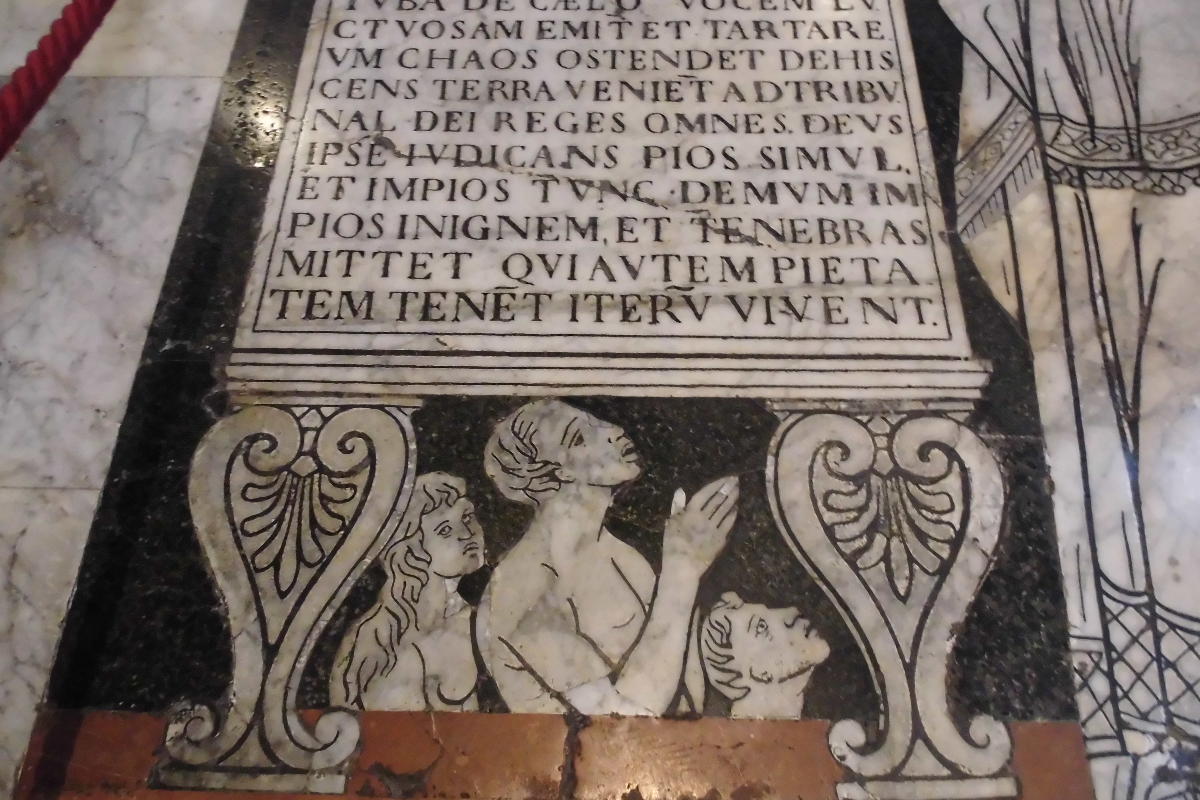 TVBA DE CÆLO VOCEM LV
CTVOSAM EMITET TARTARE.
VM CHAOS OSTENDET DEHIS
CENS TERRA VENIĒT AD TRIBV.
NAL DEI REGES OMNES. DEVS
IPSE IVDICANS PIOS SIMVL,
ET IMPIOS TVNC DEMVM IM
PIOS IN IGNEM, ET TENEBRAS
MITTET QVI AVTEM PIETA
TEM TENĒT ITERV̄ VIVENT.